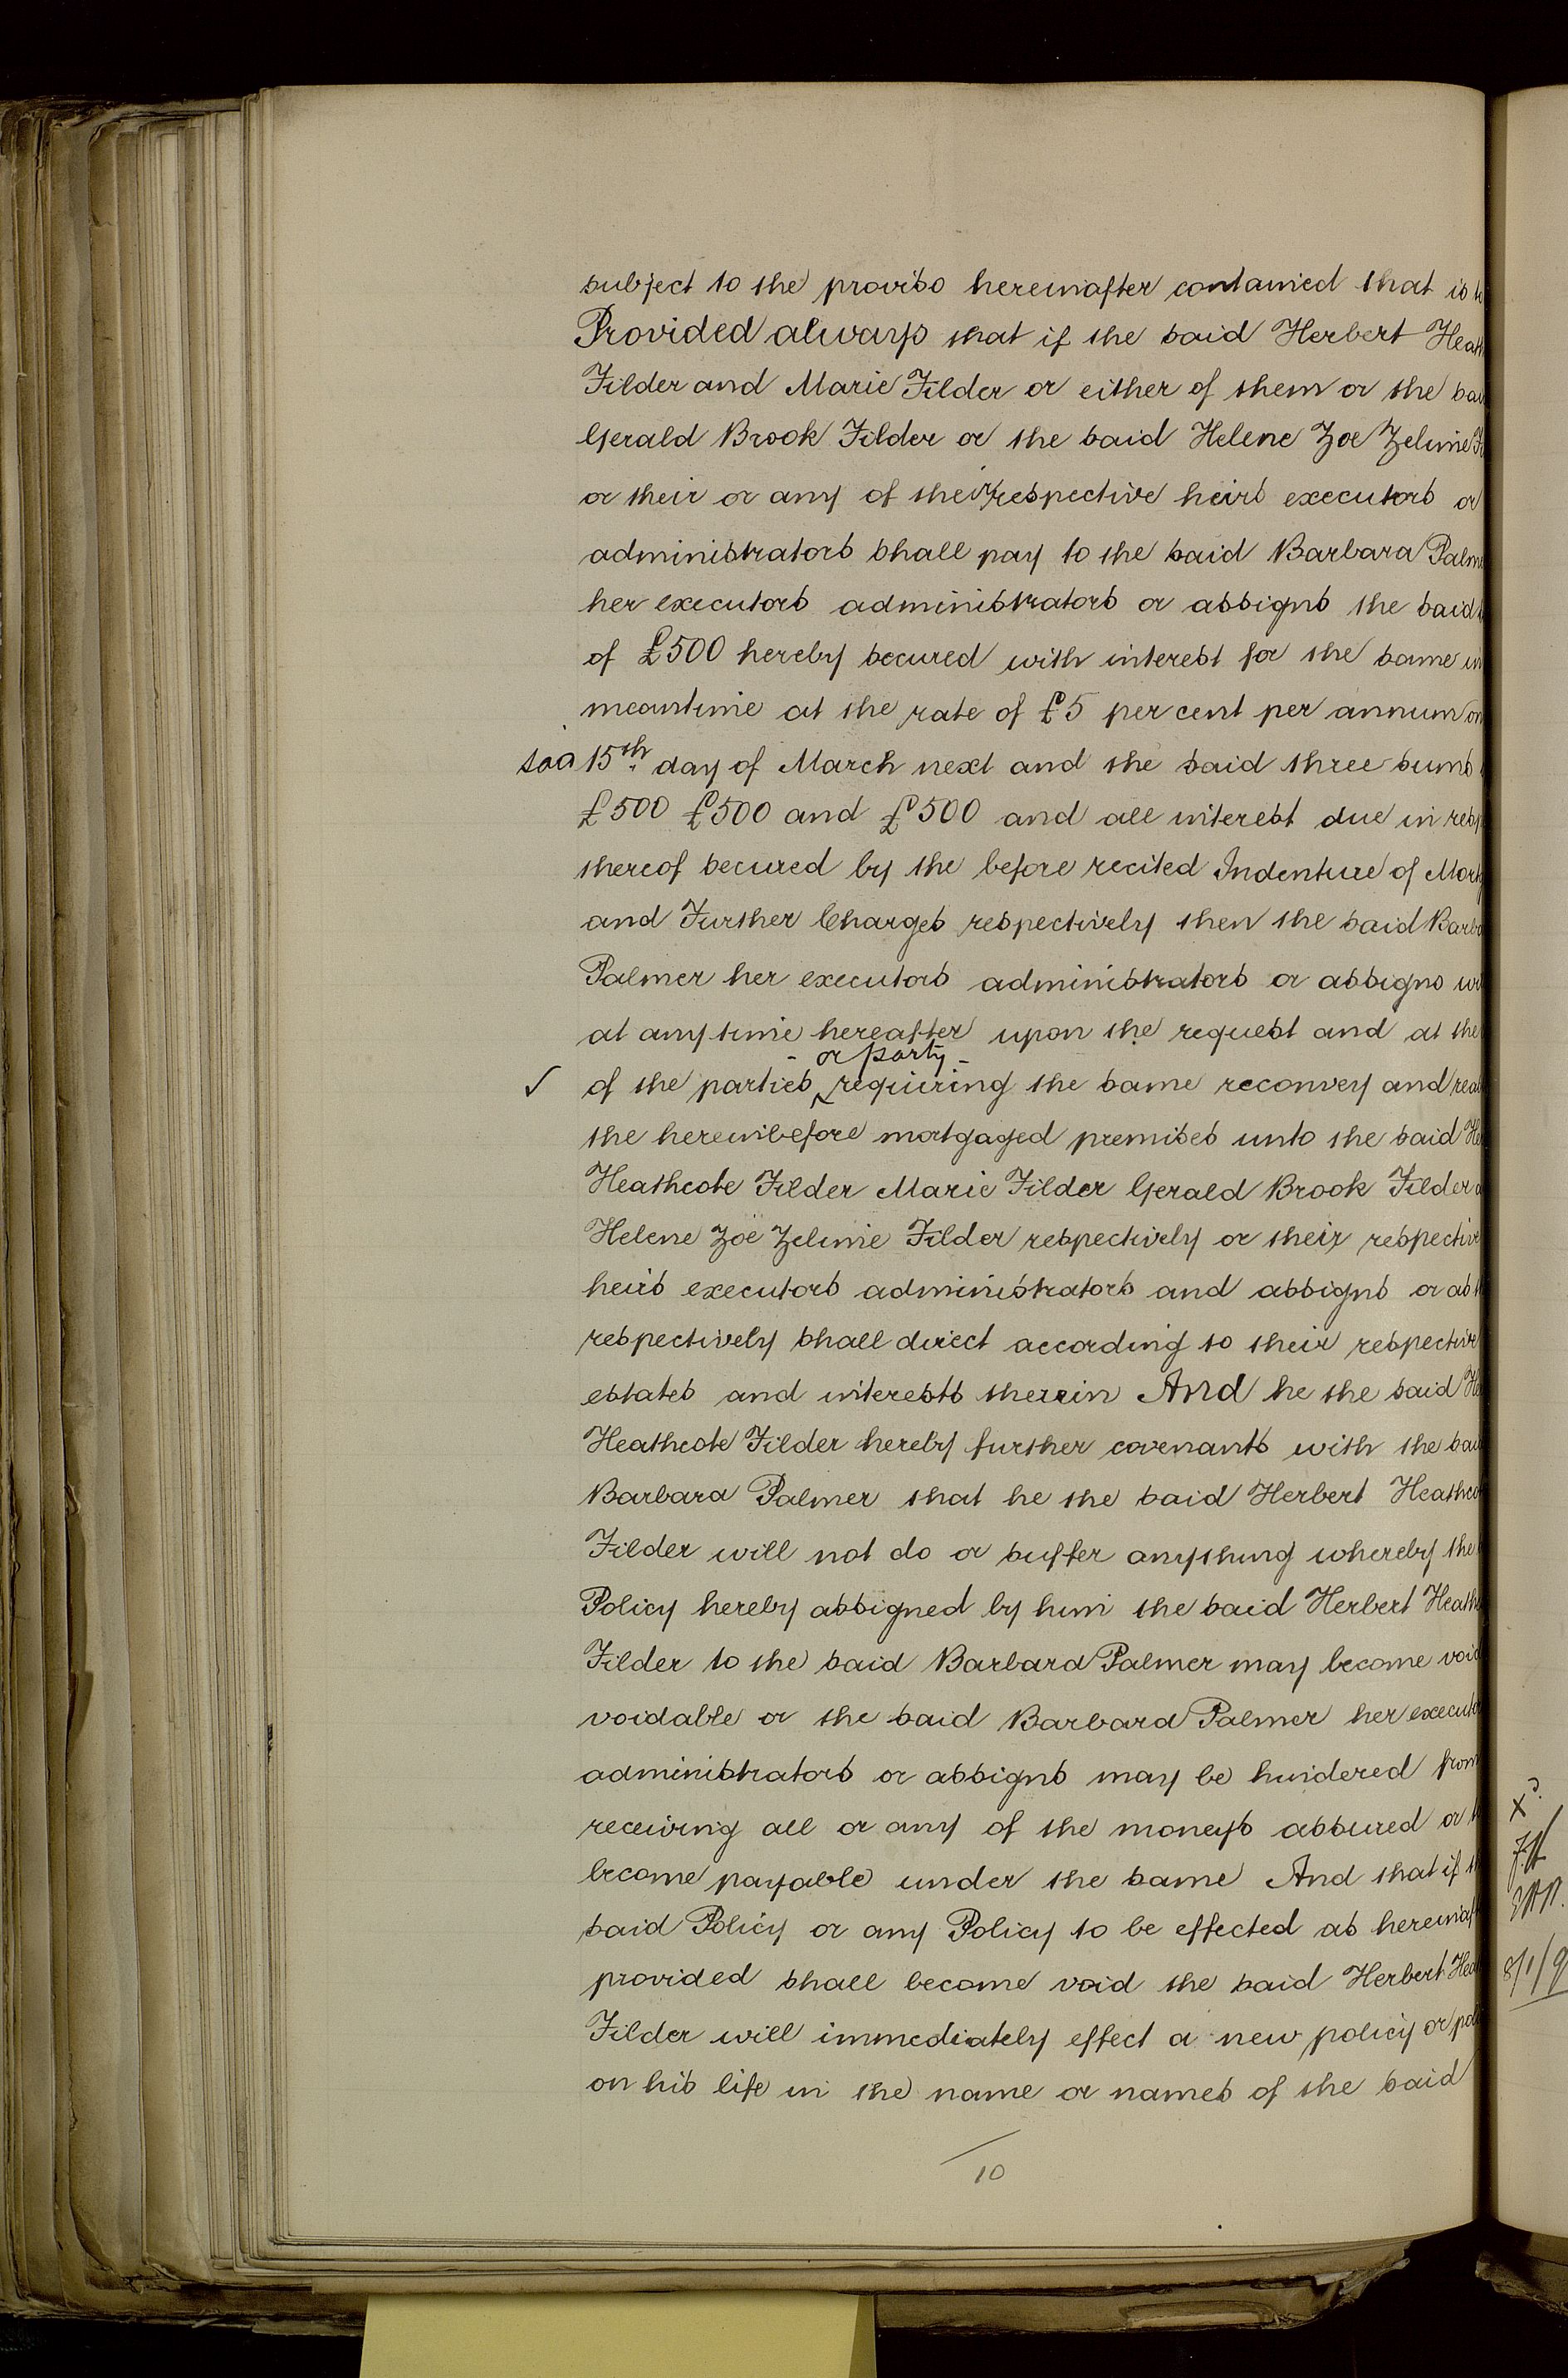 subject to the proviso hereinafter contained that is
Provided always that if the said Herbert Heath
Filder and Marie Filder or either of them or the sai
Gerald Brook Filder or the said Helene Zoe Zelmie
or their or any of their respective heirs executors or
administrators shall pay to the said Barbara Palme
her executors administrators or assigns the said
of £500 hereby secured with interest for the same in
meantime at the rate of £5 per cent per annum on
said 15th day of March next and the said three sums
£500 £500 and £500 and all interest due in resp
thereof secured by the before recited Indenture of Mort
and Further Charges respectively then the said Barba
Palmer her executors administrators or assigns wi
at any time hereafter upon the request and at the
- or party -
✓ of the parties requiring the same reconvey and rea
the hereinbefore mortgaged premises unto the said He
Heathcote Filder Marie Filder Gerald Brook Filder a
Helene Zoë Zelmie Filder respectively or their respectiv
heirs executors administrators and assigns or as
respectively shall direct according to their respective
estates and interests therein And he the said He
Heathcote Filder hereby further covenants with the sai
Barbara Palmer that he the said Herbert Heathco
Filder will not do or suffer anything whereby the
Policy hereby assigned by him the said Herbert Heath
Filder to the said Barbara Palmer may become void
voidable or the said Barbara Palmer her executo
administrators or assigns may be hindered from
receiving all or any of the moneys assured or
become payable under the same And that if
said Policy or any Policy to be effected as hereinaf
provided shall become void the said Herbert Hea
Filder will immediately effect a new policy or poli
on his life in the name or names of the said
10
8/1/9